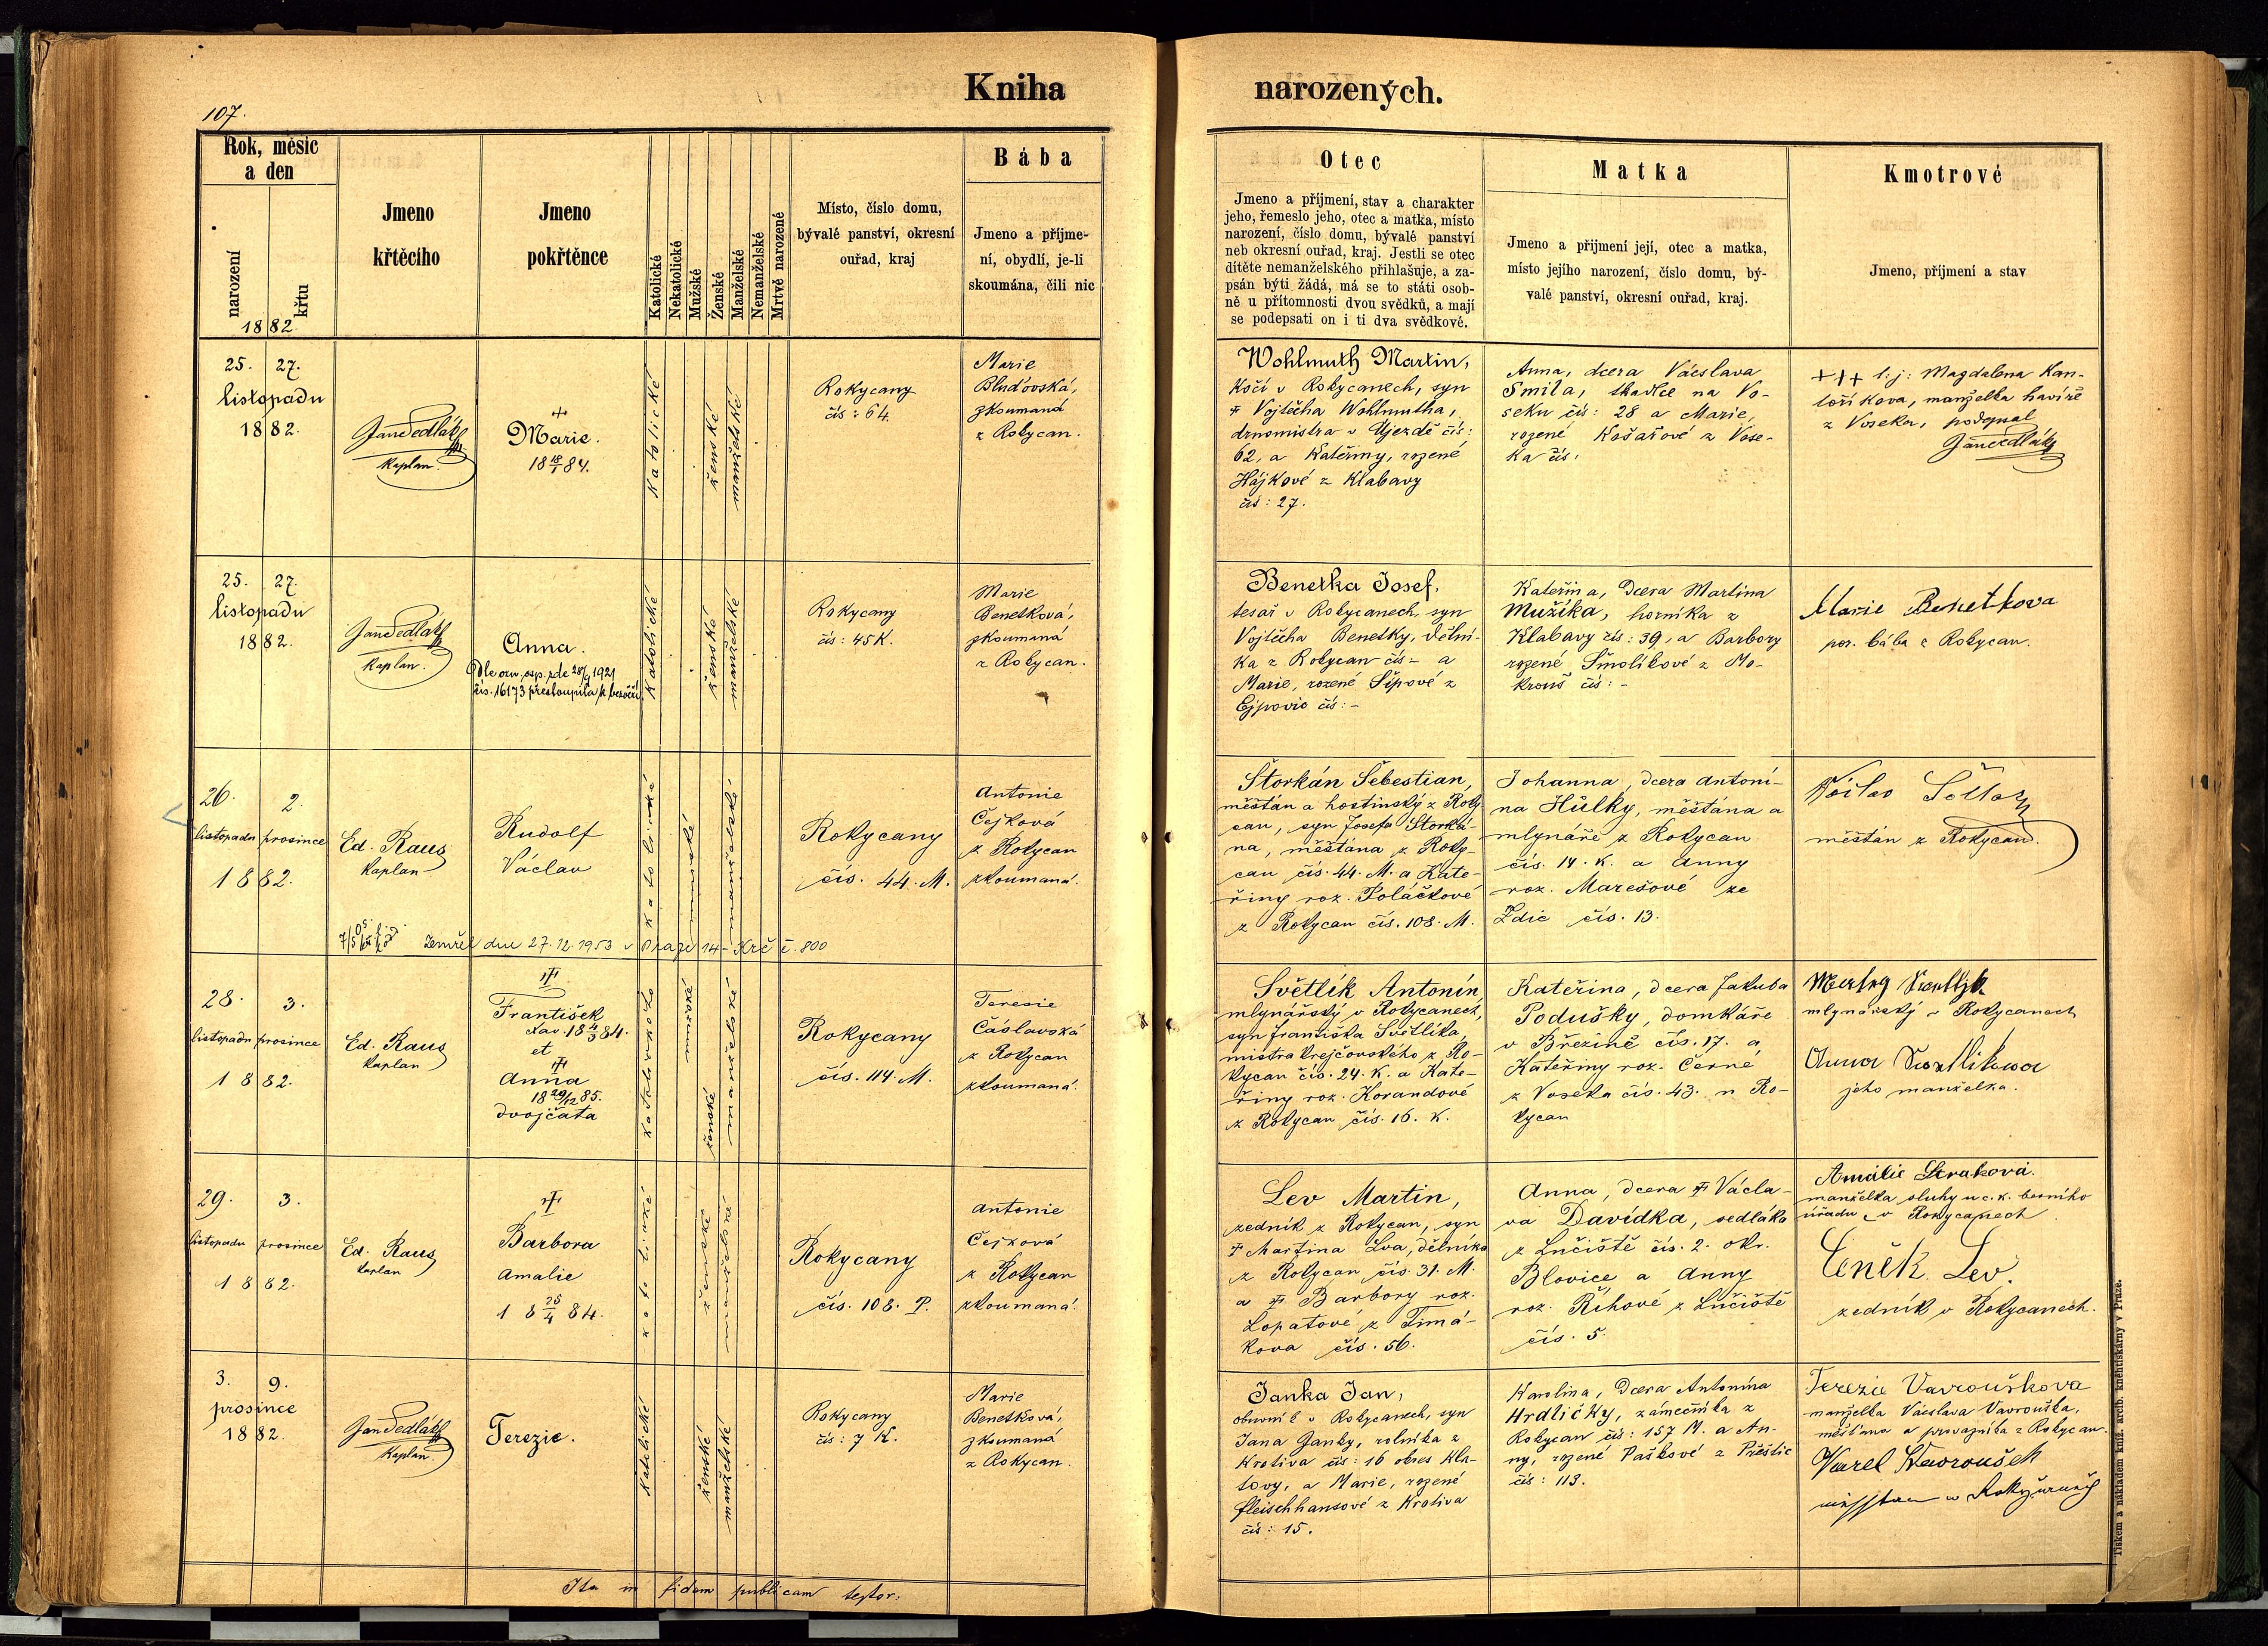 Kniha narozených.
107.
Rok, měsíc
a den
narození
křtu
1882.
Jmeno
křtěcího
Jmeno
pokřtěnce
Katolické
Nekatolické
Mužské
Ženské
Manželské
Nemanželské
Mrtvě narozené
Místo, číslo domu,
bývalé panství, okresní
ouřad, kraj
Bába
Jmeno a příjme-
ní, obydlí, je-li
skoumána, čili nic
Otec
Jmeno a příjmení, stav a charakter
jeho, řemeslo jeho, otec a matka, místo
narození, číslo domu, bývalé panství
neb okresní ouřad, kraj. Jestli se otec
dítěte nemanželského přihlašuje, a za-
psán býti žádá, má se to státi osob-
ně u přítomnosti dvou svědků, a mají
se podepsati on i ti dva svědkové.
Matka
Jmeno a přijmení její, otec a matka,
místo jejího narození, číslo domu, bý-
valé panství, okresní ouřad, kraj.
Kmotrové
Jmeno, příjmení a stav
25. 27.
listopadu
1882.
Jan Sedlák
Kaplan.
Marie.
18 18/1 84.
Katolické
ženské
manželské
Rokycany
čís: 64.
Marie
Bluďovská,
zkoumaná
z Rokycan.
Wohlmuth Martin,
Kočí v Rokycanech, syn
Vojtěcha Wohlmutha,
drnomistra v Újezdě čís:
62, a Kateřiny, rozené
Hájkové z Klabavy
čís: 27.
Anna, dcera Václava
Smila, tkadlce na Vo-
seku čís: 28 a Marie,
rozené Košařové z Vose-
ka čís:
+++ t.j: Magdalena Kan-
toříkova, manželka havíře
z Voseka, podepsal
Jan Sedlák
25. 27.
listopadu
1882.
Jan Sedlák
Kaplan.
Anna.
1921
čís. 16173 přestoupila k bezvěří.
Katolické
ženské
manželské
Rokycany
čís: 45 K.
Marie
Benetková,
zkoumaná
z Rokycan.
Benetka Josef,
tesař v Rokycanech, syn
Vojtěcha Benetky, dělní-
ka z Rokycan čís - a
Marie, rozené Šípové z
Ejpovic čís: -
Kateřina, dcera Martina
Mužíka, horníka z
Klabavy čís: 39, a Barbory
rozené Smolíkové z Mo-
krouš čís: -
Marie Benetkova
por. bába z Rokycan.
26. 2.
listopadu prosince
1882.
Ed. Raus
Kaplan
Rudolf
Václav
katolické
mužské
manželské
Rokycany
čís. 44. M.
Antonie
Čejková
z Rokycan
zkoumaná.
Zemřel dne 27.12.1953 v Praze 14-Krč č. 800
Štorkán Šebestian,
měšťan a hostinský z Roky-
can, syn Josefa Štorká-
na, měšťana z Roky-
can čís. 44. M. a Kate-
řiny roz. Poláčkové
z Rokycan čís. 108. M.
Johanna, dcera Antoní-
na Hůlky, měšťana a
mlynáře z Rokycan
čís. 14. K. a Anny
roz. Marešové ze
Zdic čís. 13.
měšťan z Rokycan.
28. 3.
listopadu prosince
1882.
Ed. Raus
Kaplan
František
Xav. 18 4/3 84.
et
Anna
18 29/12 85.
dvojčata
katolické
mužské
ženské
manželské
Rokycany
čís. 114. M.
Teresie
Čáslavská
z Rokycan
zkoumaná.
Světlík Antonín,
mlynářský v Rokycanech,
syn Františka Světlíka,
mistra krejčovského z Ro-
kycan čís. 24. K. a Kate-
řiny roz. Korandové
z Rokycan čís. 16. K.
Kateřina, dcera Jakuba
Podušky, domkáře
v Březině čís. 17. a
Kateřiny roz. Černé
z Voseka čís. 43. u Ro-
kycan
mlynářský v Rokycanech
jeho manželka.
29. 3.
listopadu prosince
1882.
Ed. Raus
Kaplan
Barbora
Amalie
18 25/4 84.
katolické
ženské
manželské
Rokycany
čís. 108. P.
Antonie
Čejková
z Rokycan
zkoumaná.
Lev Martin,
zedník z Rokycan, syn
Martina Lva, dělníka
z Rokycan čís. 31. M.
a Barbory roz.
Lopatové z Timá-
kova čís. 56.
Anna, dcera Václa-
va Davídka, sedláka
z Lučiště čís. 2. okr.
Blovice a Anny
roz. Říhové z Lučiště
čís. 5.
Amálie Straková.
manželka sluhy u c. k. berního
úřadu v Rokycanech
Čeněk Lev.
zedník v Rokycanech.
3. 9.
prosince
1882.
Jan Sedlák
Kaplan.
Terezie.
Katolické
ženské
manželské
Rokycany
čís: 7 K.
Marie
Benetková,
zkoumaná
z Rokycan.
Janka Jan,
obuvník v Rokycanech, syn
Jana Janky, rolníka z
Krotiva čís: 16 okres Kla-
tovy, a Marie, rozené
Fleischhansové z Krotiva
čís: 15.
Karolina, dcera Antonína
Hrdličky, zámečníka z
Rokycan čís: 157 M. a An-
ny, rozené Paškové z Přeštic
čís: 113.
Terezie Vavroušková
manželka Václava Vavrouška,
měšťana a provazníka z Rokycan.
Karel Wavroušek
Ita in fidem publicam testor:
Tiskem a nákladem kníž. arcib. knihtiskárny v Praze.